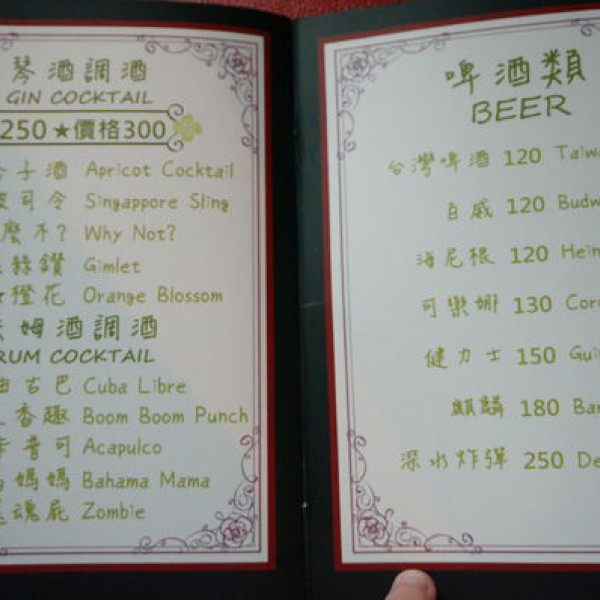 琴酒調酒
GIN COCKTAIL
250★價格300
子酒 Apricot Cocktail
司令 Singappore Sling
麼不? Why Not?
絲鑽 Gimlet
橙花 Orange Blossom
姆酒調酒
RUM COCKTAIL
古巴 Cuba Libre
香趣 Boom Boom Punch
音可 Acapulco
媽媽 Bahama Mama
魂屍 Zombie
啤酒類
BEER
台灣啤酒 120 Taiwa
百威 120 Budw
海尼根 120 Hein
可樂娜 130 Coro
健力士 150 Gui
麒麟 180 Bar
深水炸彈 250 De